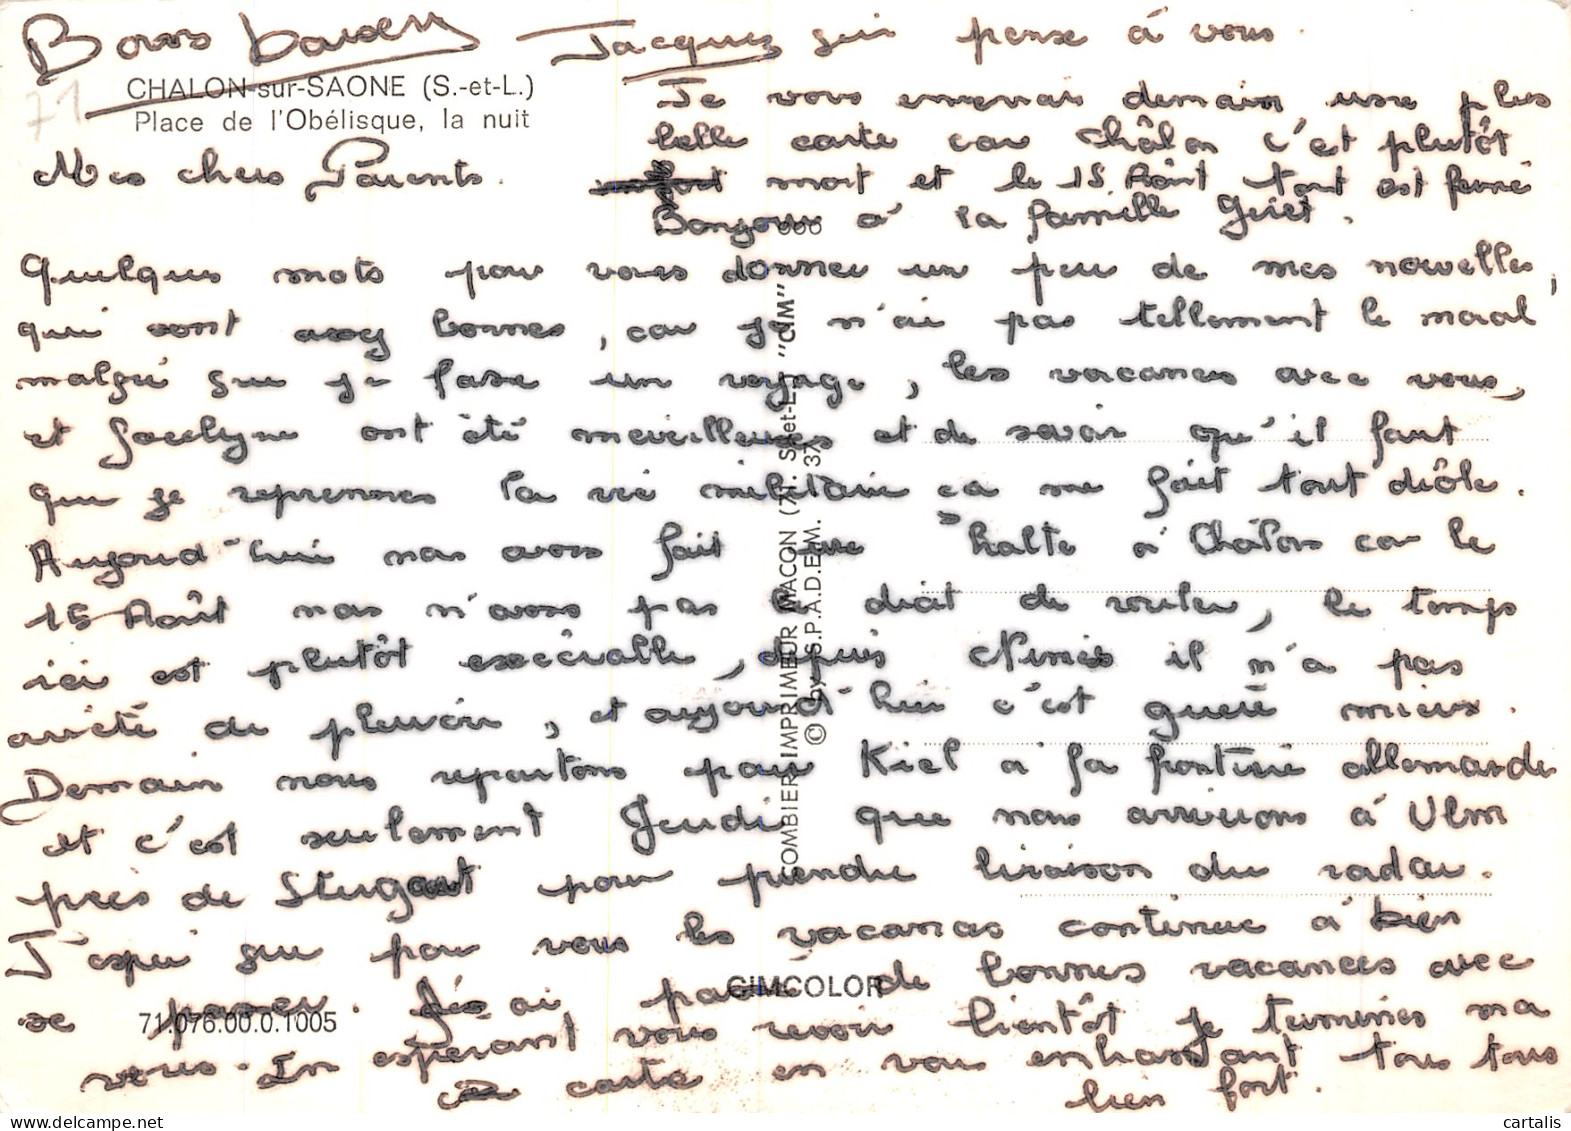 Bons baisers Jacques qui pense à vous.
CHALON-sur-SAONE (S.-et-L.)
Place de l'Obélisque, la nuit
71
Mes chers Parents.
Je vous enverrais demain une plus
belle carte car Châlon c'est plutôt
mort et le 15 Août tout est fermé
Bonjour à la famille
Quelques mots pour vous donner un peu de mes nouvelles,
qui sont assez bonnes, car je n'ai pas tellement le moral
malgré que je fasse un voyage, les vacances avec vous,
et Jocelyne ont été merveilleuses et de savoir qu'il faut
que je reprennes la vie militaire ça me fait tout drôle.
Aujourd'hui nous avons fait une halte à Châlons car le
15 Août nous n'avons pas le droit de rouler, le temps
ici est plutôt exécrable, depuis Nimes il n'a pas
arrêté de pleuvoir, et aujourd'hui c'est guère mieux.
Demain nous repartons pour Kiel à la frontière allemande
et c'est seulement Jeudi que nous arriverons à Ulm
près de Stugart pour prendre livraison du radar.
J'espère que pour vous les vacances continue à bien
se passer. J'ai passé de bonnes vacances avec
vous. En espérant vous revoir bientôt je termines ma
carte en vous embrassant tous tous
bien fort.
COMBIER IMPRIMEUR MACON (71. S.-et-L.) "CIM"
© by S.P.A.D.E.M. 37
CIMCOLOR
71.076.00.0.1005
cartalis.com